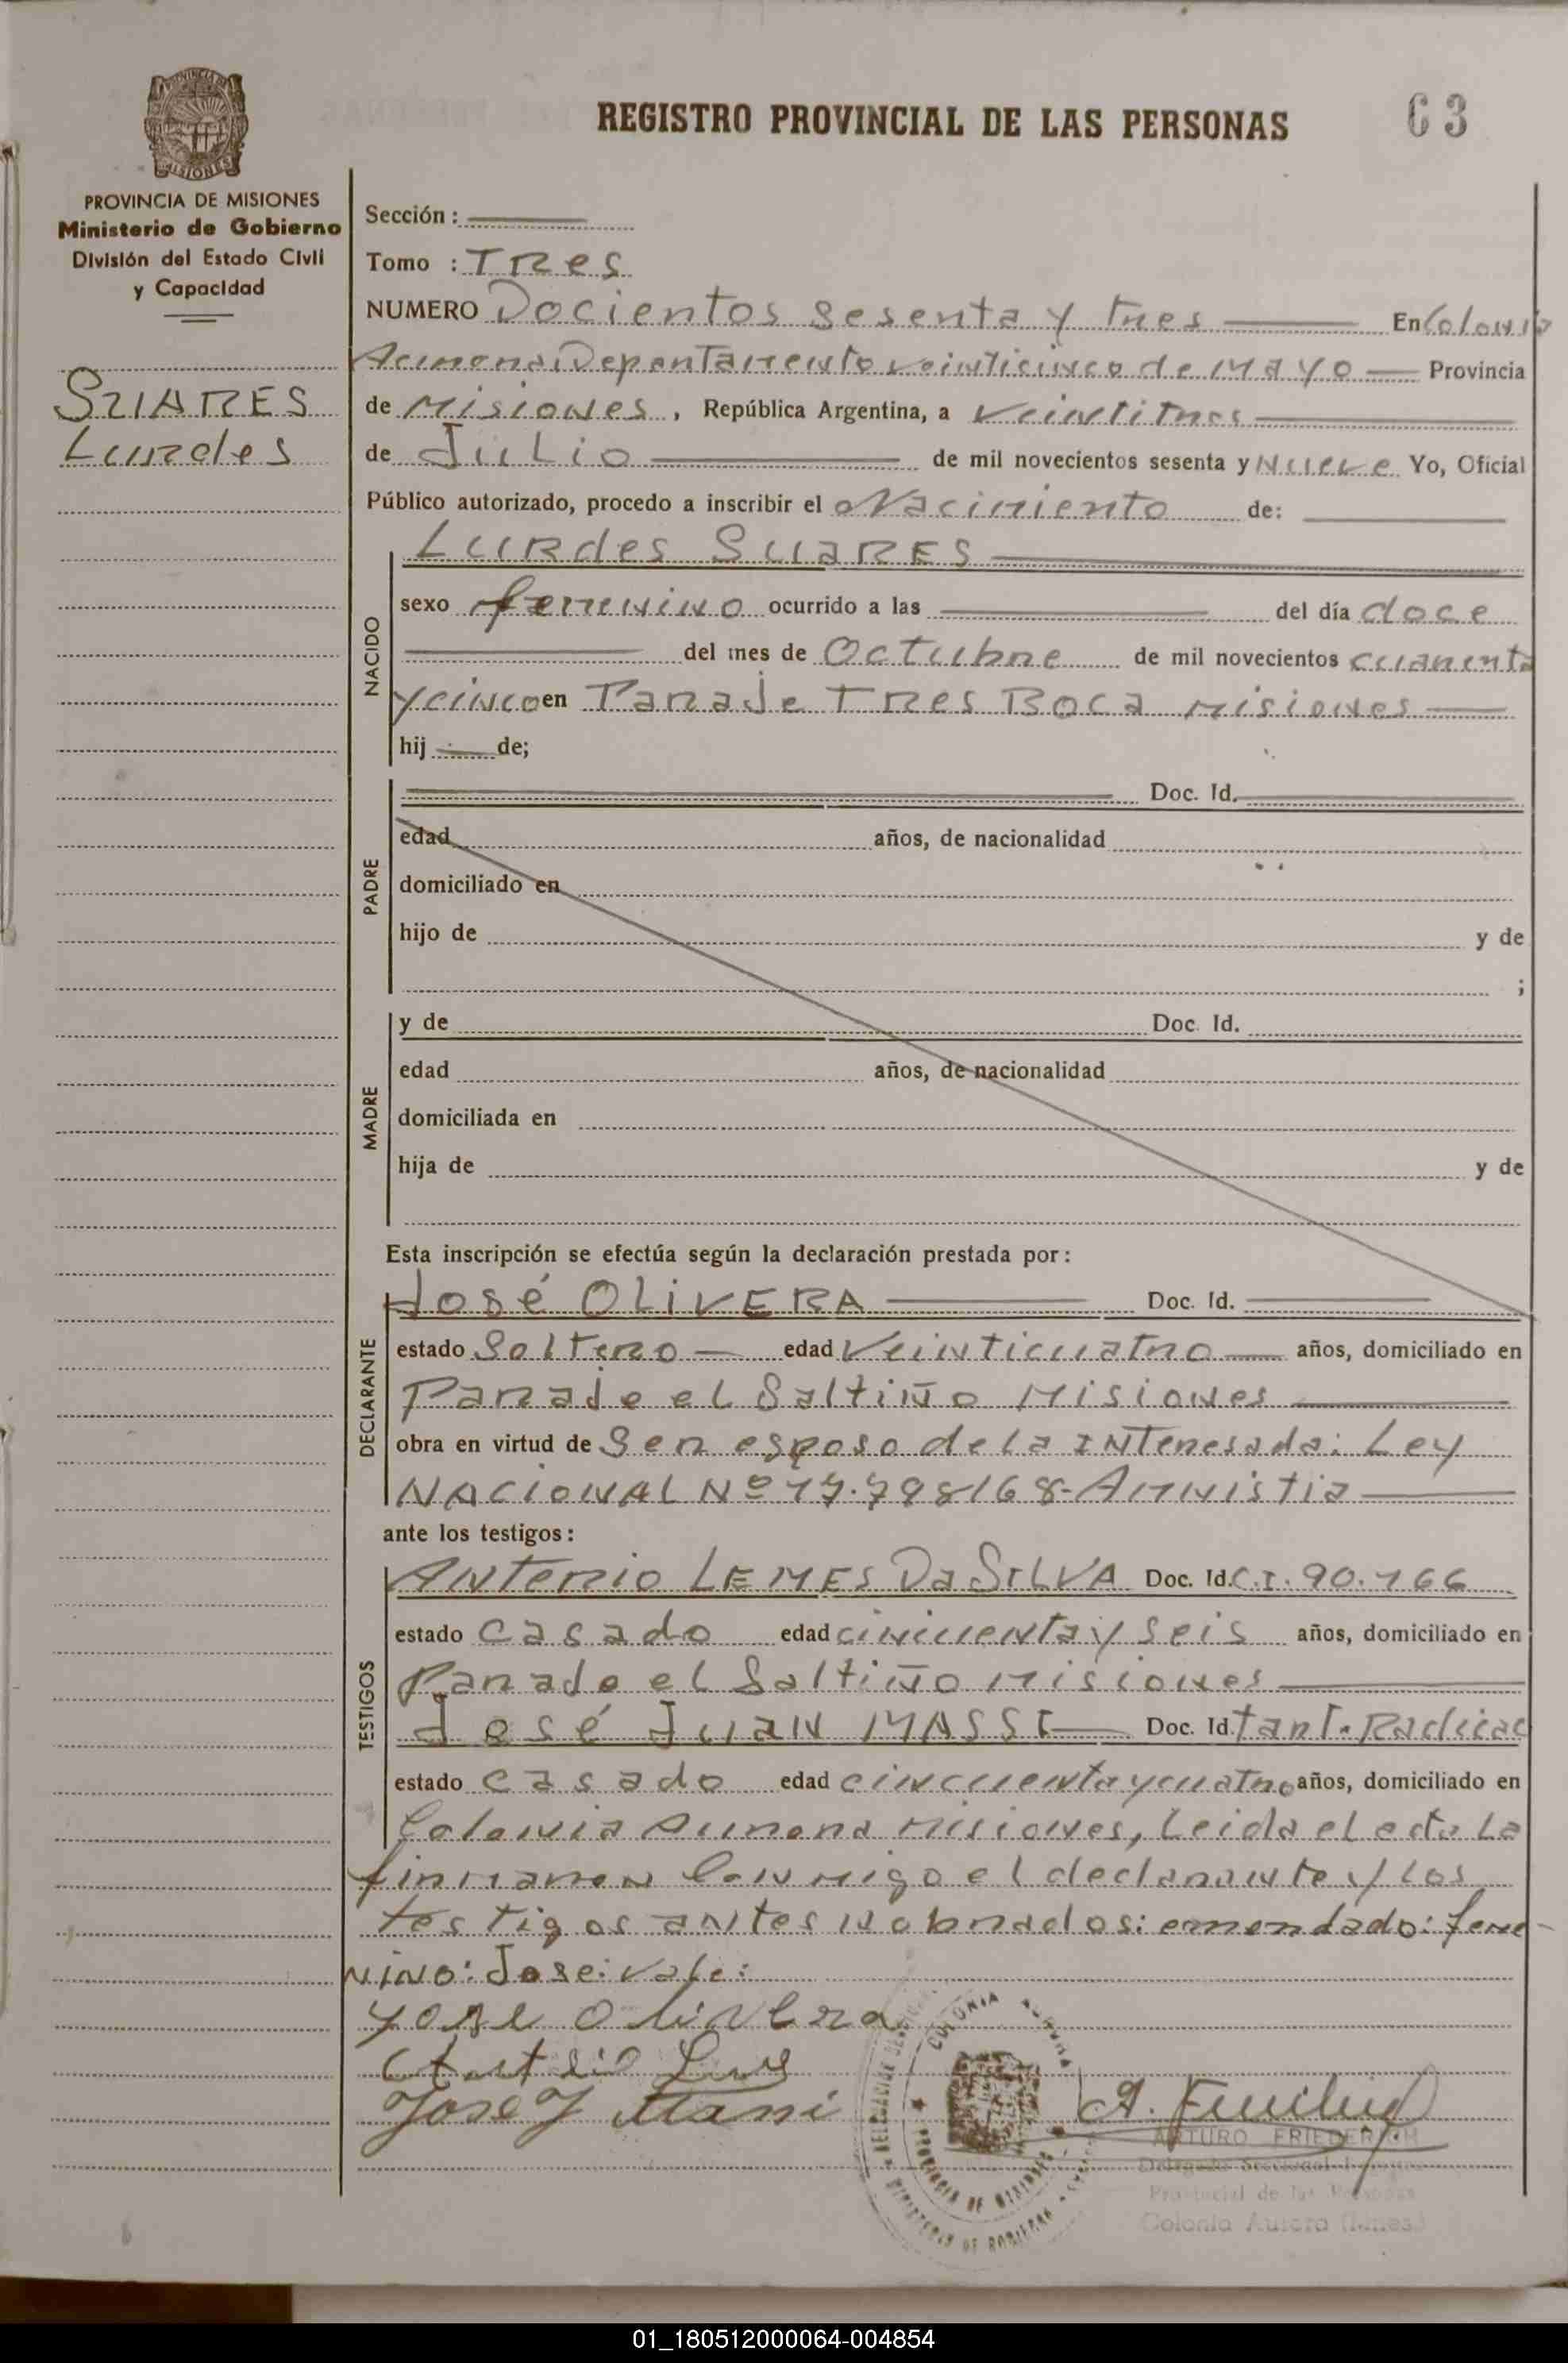 REGISTRO PROVINCIAL DE LAS PERSONAS
63
PROVINCIA DE MISIONES
Ministerio de Gobierno
División del Estado Civil
y Capacidad
SUARES
Lurdes
Sección :
Tomo : Tres
NUMERO Docientos sesenta y tres En Colonia
Aurora; Departamento veinticinco de Mayo Provincia
de Misiones, República Argentina, a veintitres
de Julio de mil novecientos sesenta y Nueve Yo, Oficial
Público autorizado, procedo a inscribir el Nacimiento de:
NACIDO
Lurdes SuaRES
sexo femenino ocurrido a las del día doce
del mes de Octubre de mil novecientos cuarenta
y cinco en Paraje Tres Boca Misiones
hij de;
PADRE
Doc. Id.
edad años, de nacionalidad
domiciliado en
hijo de y de
;
MADRE
y de Doc. Id.
edad años, de nacionalidad
domiciliada en
hija de y de
Esta inscripción se efectúa según la declaración prestada por:
DECLARANTE
José OLiVERA Doc. Id.
estado Soltero edad Veinticuatro años, domiciliado en
Paraje el Saltiño Misiones
obra en virtud de Ser esposo de la INTeresada: Ley
NACIONAL Nº 17.798/68-Amnistia
ante los testigos:
TESTIGOS
ANTonio LEMES Da SILVA Doc. Id. C.I. 90.166
estado casado edad cincuenta y seis años, domiciliado en
Paraje el Saltiño Misiones
José JUAN MASSI Doc. Id. tarJ. Radicac
estado casado edad cincuenta y cuatro años, domiciliado en
Colonia Aurora Misiones, Leida el acta La
firmaron conmigo el declarante y los
testigos antes nobrados: emendado: feme-
NINO: Jose: vale:
Yose Olivera
Jose J Massi
COLONIA AURORA
PROVINCIA DE MISIONES
MINISTERIO DE GOBIERNO
ARTURO FRIEDERICH
Delegado Seccional
Provincial de las Personas
Colonia Aurora (Mnes.)
01_180512000064-004854